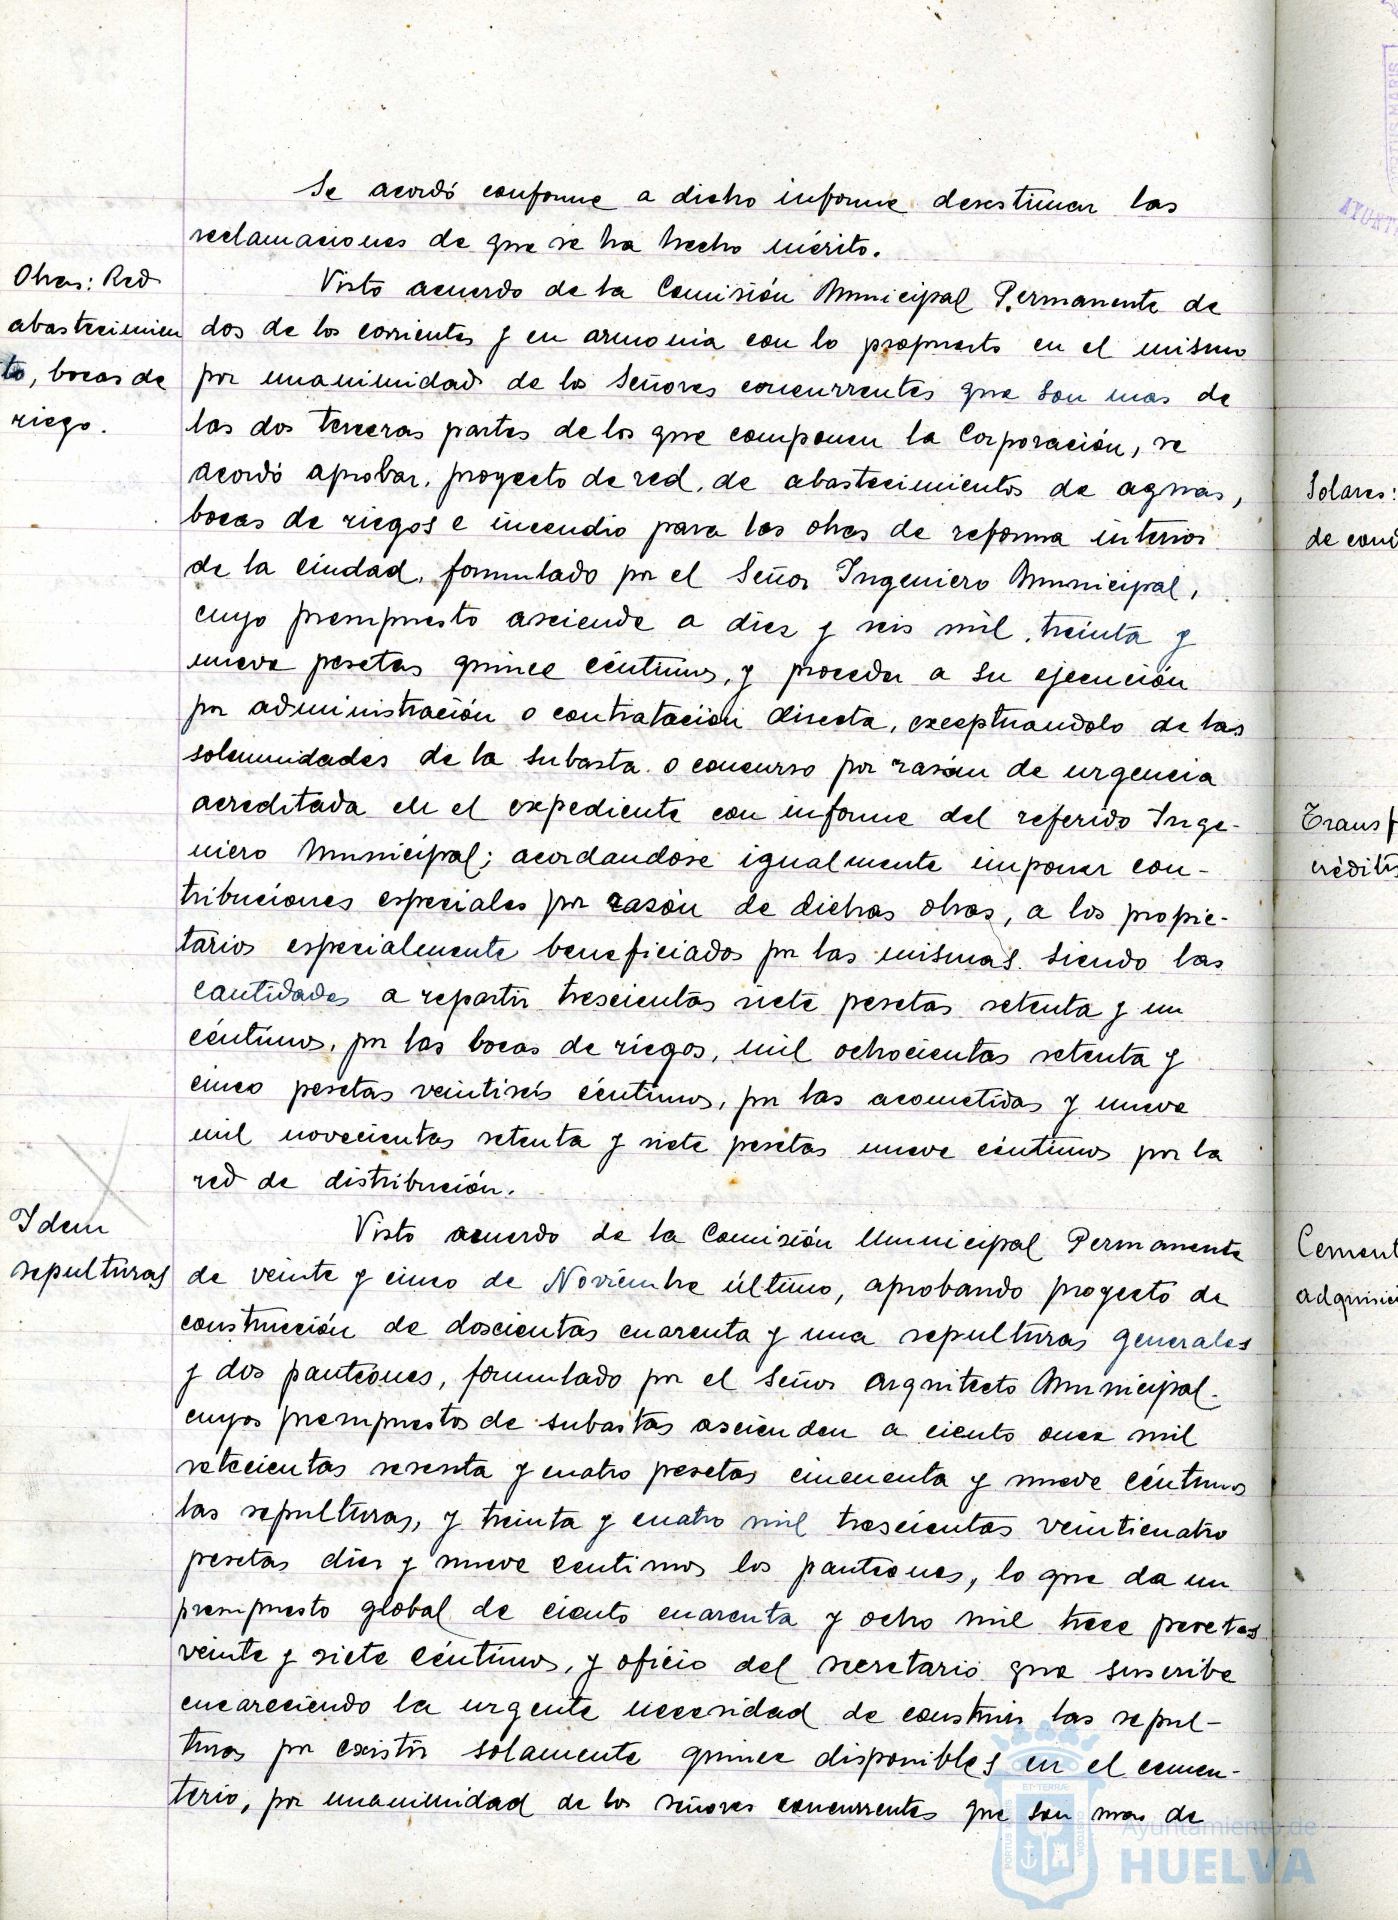 Se acordó conforme a dicho informe desestimar las
reclamaciones de que se ha hecho mérito.
Obras: Red
abastecimien
to, bocas de
riego.
Visto acuerdo de la Comisión Municipal Permanente de
dos de los corrientes y en armonia con lo propuesto en el mismo
por unanimidad de los Señores concurrentes que son mas de
las dos terceras partes de los que componen la Corporación, se
acordó aprobar, proyecto de red, de abastecimientos de aguas,
bocas de riegos e incendio para las obras de reforma interior
de la ciudad, formulado por el Señor Ingeniero Municipal,
cuyo presupuesto asciende a diez y seis mil, treinta y
nueve pesetas quince céntimos, y proceder a su ejecución
por administración o contratación directa, exceptuandolo de las
solemnidades de la subasta o concurso por razón de urgencia
acreditada en el expediente con informe del referido Inge-
niero Municipal; acordandose igualmente imponer con-
tribuciones especiales por razón de dichas obras, a los propie-
tarios especialmente beneficiados por las mismas siendo las
cantidades a repartir trescientas siete pesetas setenta y un
céntimos, por las bocas de riegos, mil ochocientas setenta y
cinco pesetas veintiseis céntimos, por las acometidas y nueve
mil novecientas setenta y siete pesetas nueve céntimos por la
red de distribución.
Idem
sepulturas
Visto acuerdo de la Comisión Municipal Permanente
de veinte y cinco de Noviembre último, aprobando proyecto de
construcción de doscientas cuarenta y una sepulturas generales
y dos panteones, formulado por el Señor Arquitecto Municipal.
cuyos presupuestos de subastas ascienden a ciento once mil
setecientas sesenta y cuatro pesetas cincuenta y nueve céntimos
las sepulturas, y treinta y cuatro mil trescientas veinticuatro
pesetas diez y nueve centimos los panteones, lo que da un
presupuesto global de ciento cuarenta y ocho mil trece pesetas
veinte y siete céntimos, y oficio del secretario que suscribe
encareciendo la urgente necesidad de construir las sepul-
turas por existir solamente quince disponibles en el cemen-
terio, por unanimidad de los señores concurrentes que son mas de
Solares:
de cond
Transf
crédito
Cement
adquisici
AYUNT
PORTUS MARIS
ET TERRÆ
CUSTODIA
Ayuntamiento de
HUELVA